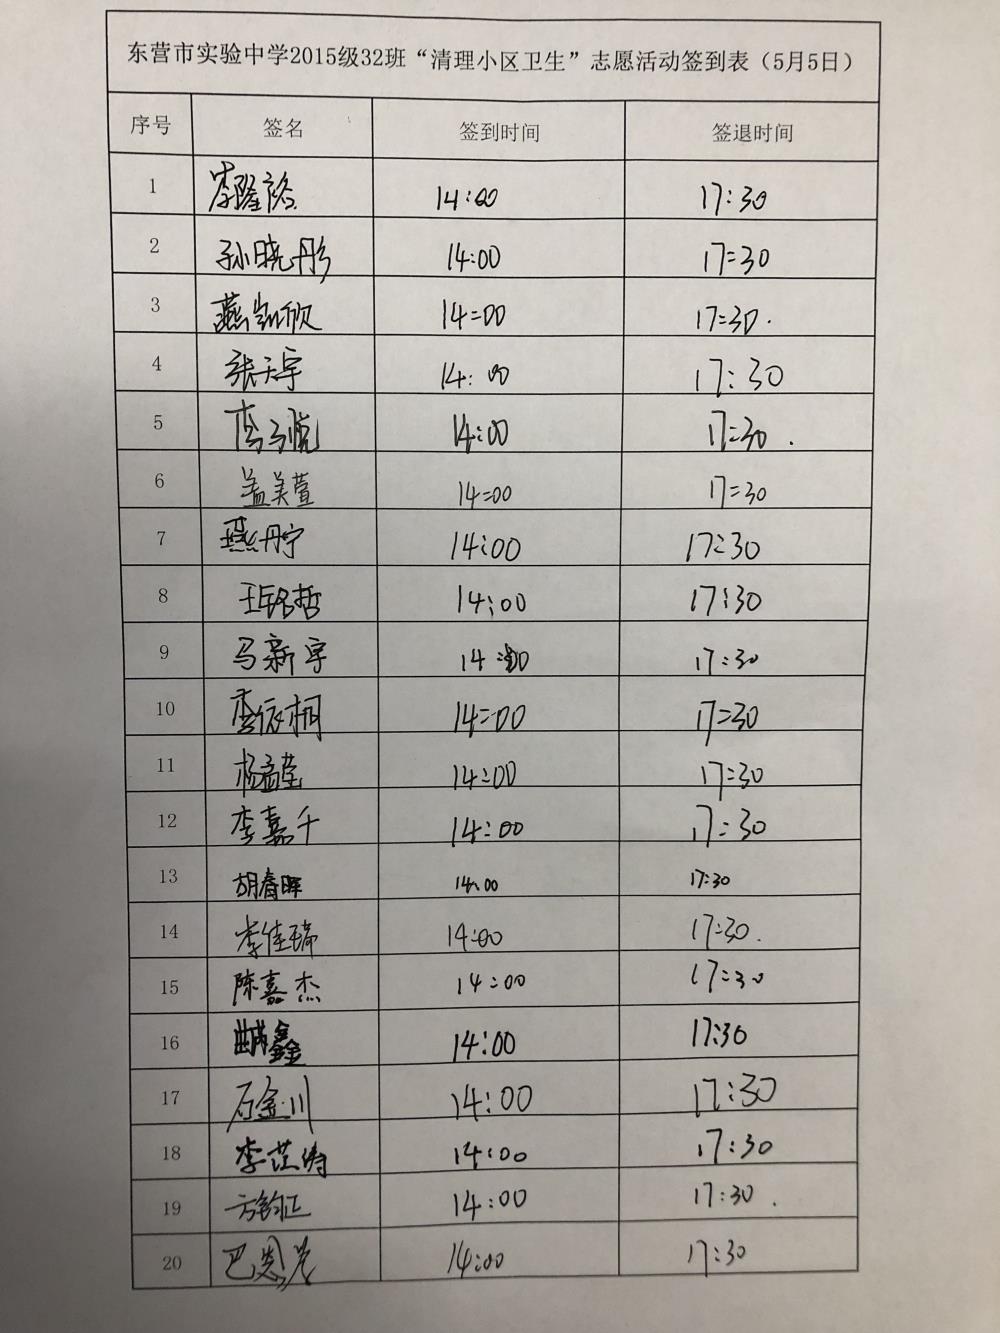 东营市实验中学2015级32班“清理小区卫生”志愿活动签到表（5月5日）
序号 签名 签到时间 签退时间
1 李隆裕 14:00 17:30
2 孙晓彤 14:00 17:30
3 燕凯欣 14:00 17:30.
4 张天宇 14:00 17:30
5 14:00 17:30.
6 盖美萱 14:00 17:30
7 燕丹宁 14:00 17:30
8 王铭哲 14:00 17:30
9 马新宇 14:00 17:30
10 李依桐 14:00 17:30
11 杨孟莹 14:00 17:30
12 李嘉千 14:00 17:30
13 胡春晖 14:00 17:30
14 李佳瑞 14:00 17:30.
15 陈嘉杰 14:00 17:30
16 鑫 14:00 17:30
17 石金川 14:00 17:30
18 李芷涛 14:00 17:30
19 方钧正 14:00 17:30.
20 巴恩光 14:00 17:30